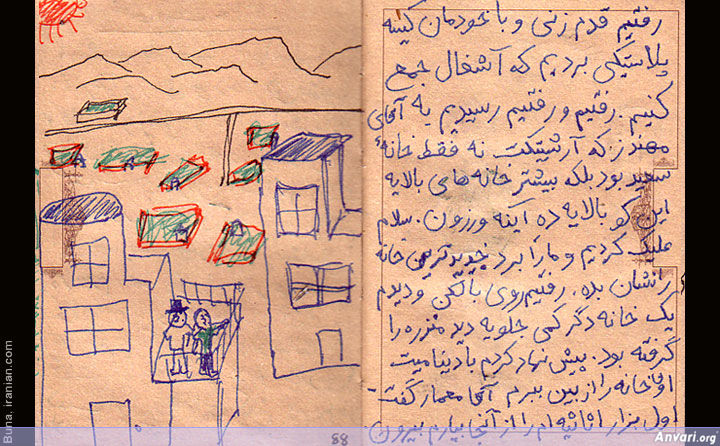 رفتیم قدم زنی و با خودمان کیسه
پلاستیکی بردیم که آشغال جمع
کنیم. رفتیم و رفتیم رسیدیم به آقای
مهندز که آرشیتکت نه فقط خانهٔ
سعید بود بلکه بیشتر خانه های بالایه
این کو بالایه ده اینکه ورزون. سلام
علیک کردیم و مارا برد جدیدترین خانه
را نشان بده. رفتیم روی بالکن و دیدم
یک خانه دگر کمی جلویه دید منزره را
گرفته بود. پیش نهاد کردم با دینامیت
اوفا خانه را از بین ببرم آقا معمار گفت
اول بزار اثاثیه ام را از آنجا بیارم بیرون
88
Buna. iranian.com
Anvari.org